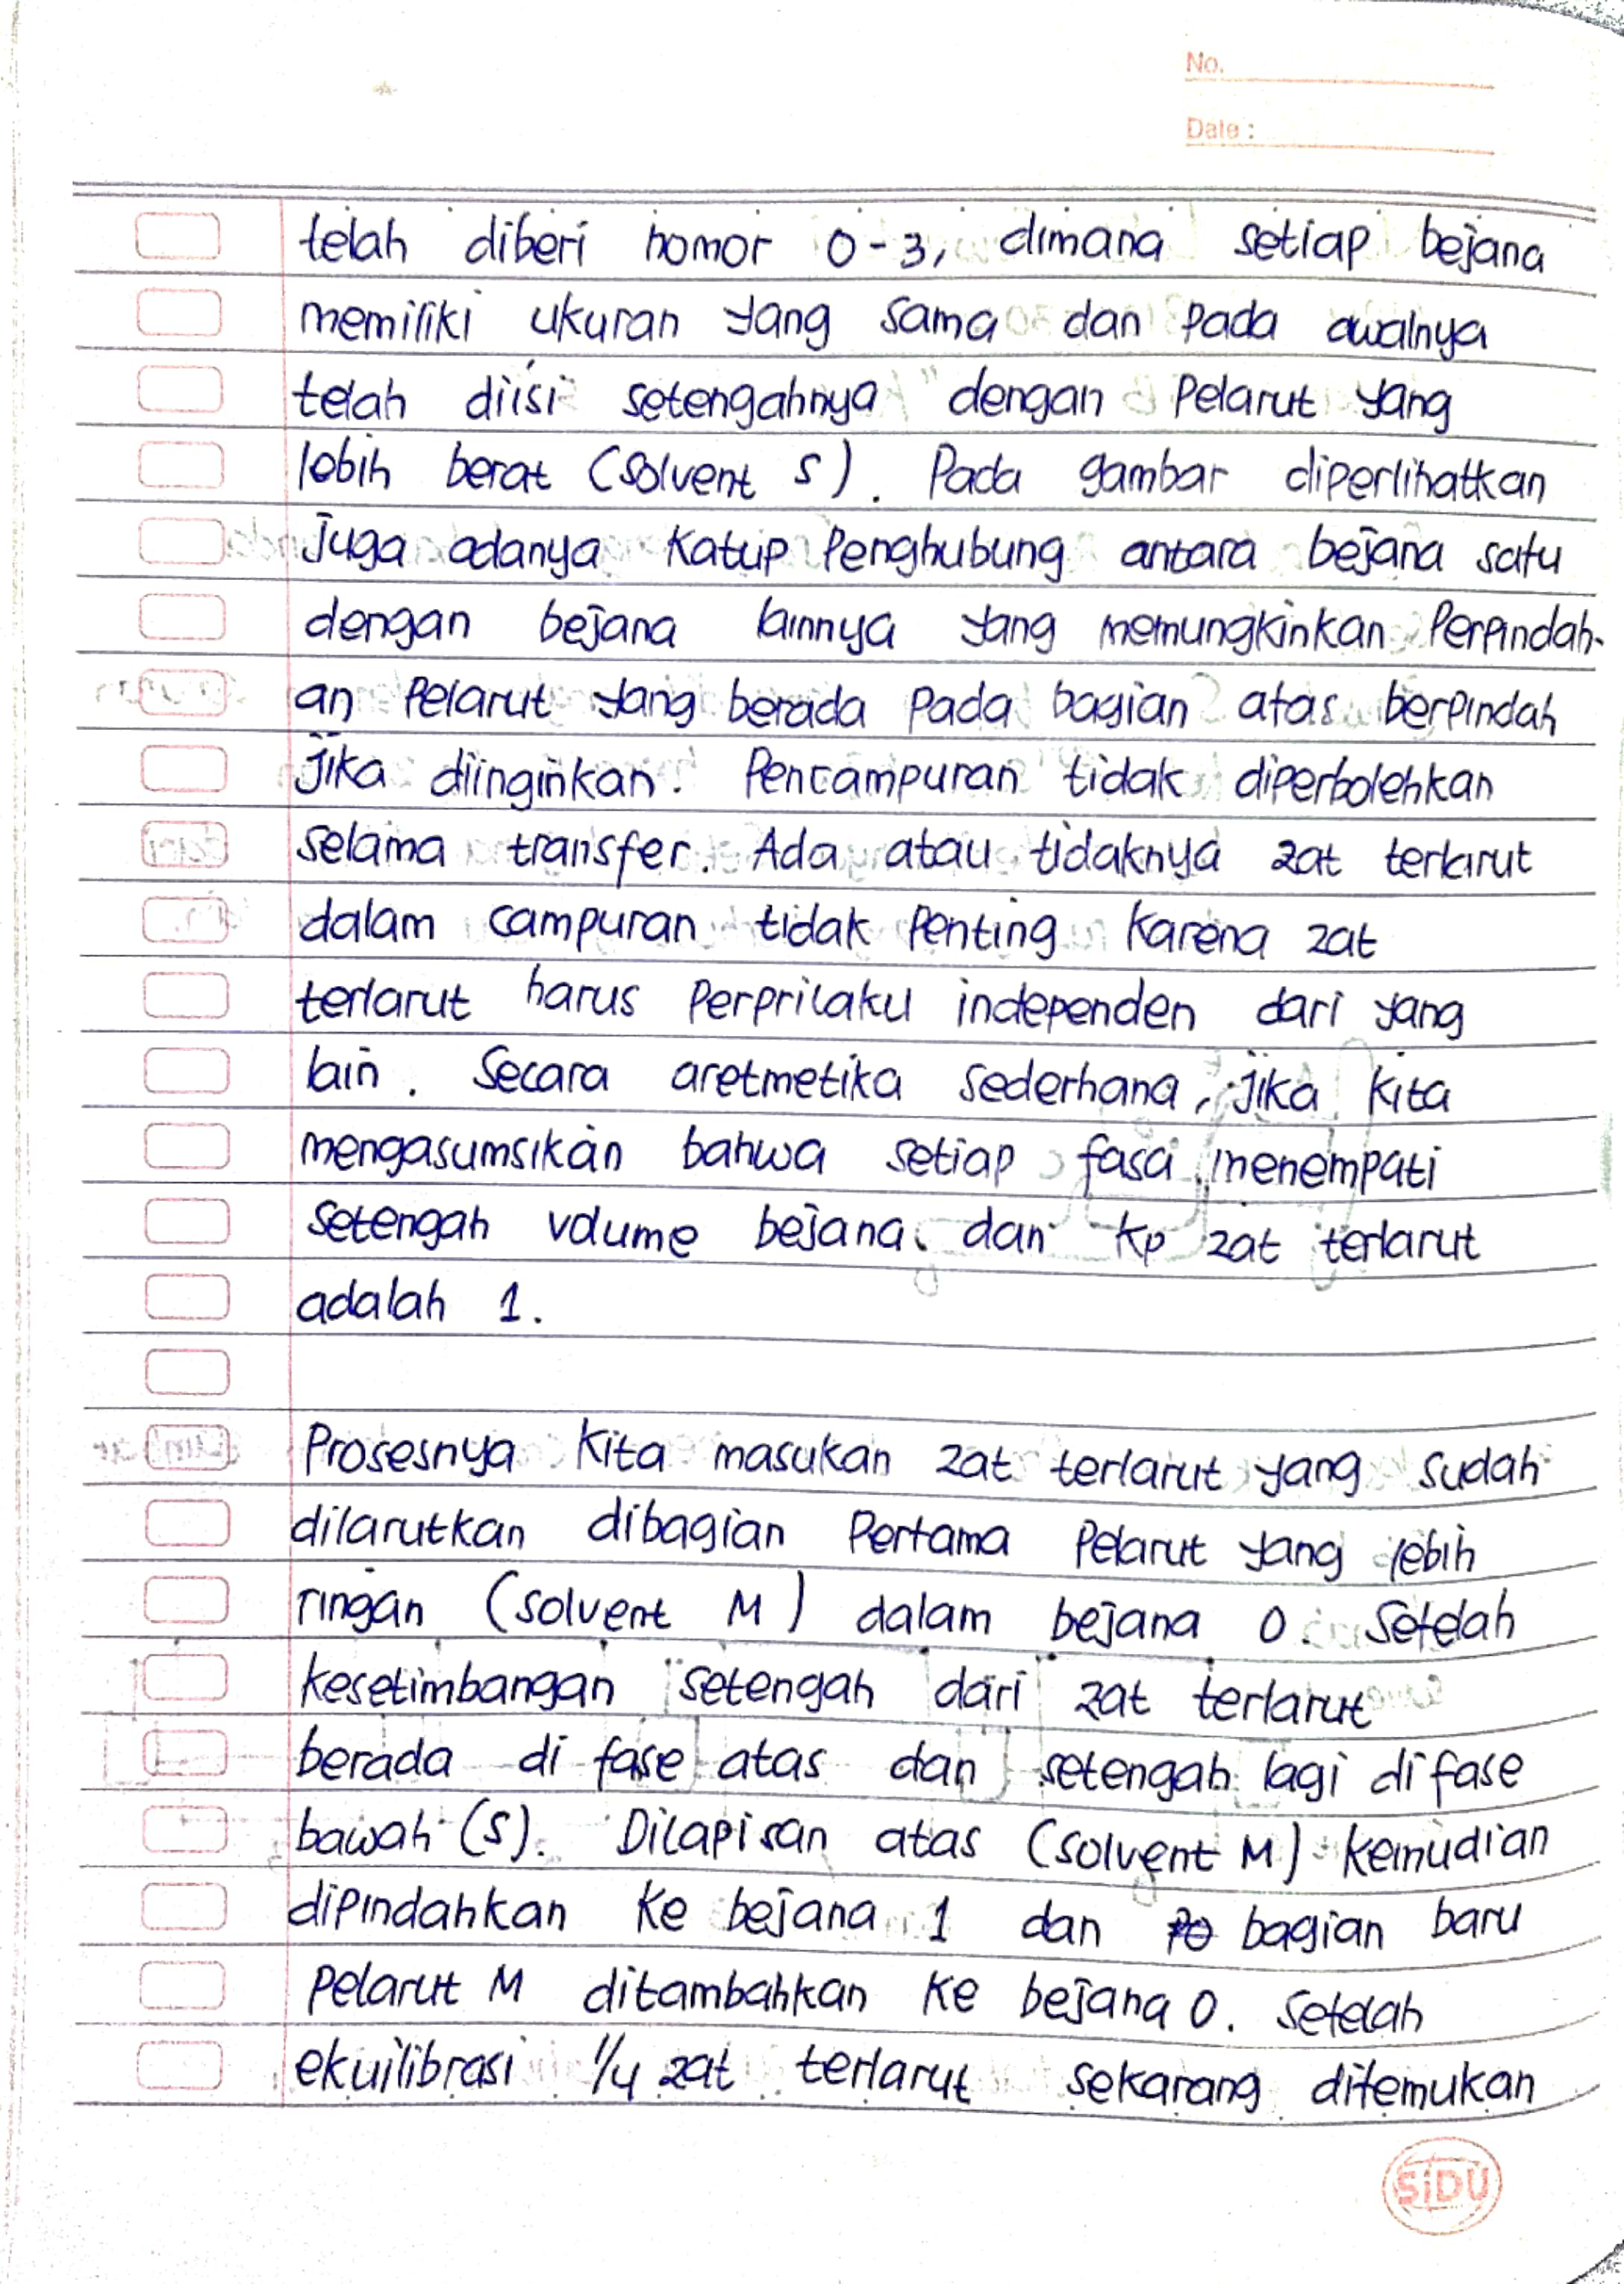 No.
Date :
telah diberi nomor 0-3, dimana setiap bejana
memiliki ukuran yang sama dan pada awalnya
telah diisi setengahnya dengan pelarut yang
lebih berat (solvent S). Pada gambar diperlihatkan
juga adanya katup penghubung antara bejana satu
dengan bejana lainnya yang memungkinkan perpindah-
an pelarut yang berada pada bagian atas berpindah
jika diinginkan. Pencampuran tidak diperbolehkan
selama transfer. Ada atau tidaknya zat terlarut
dalam campuran tidak penting karena zat
terlarut harus perprilaku independen dari yang
lain. Secara aretmetika sederhana, jika kita
mengasumsikan bahwa setiap fasa menempati
setengah volume bejana. dan Kp zat terlarut
adalah 1.
Prosesnya kita masukan zat terlarut yang sudah
dilarutkan dibagian pertama pelarut yang lebih
ringan (solvent M) dalam bejana 0. Setelah
kesetimbangan setengah dari zat terlarut
berada di fase atas dan setengah lagi di fase
bawah (S). Dilapisan atas (solvent M) kemudian
dipindahkan ke bejana 1 dan bagian baru
pelarut M ditambahkan ke bejana 0. Setelah
ekuilibrasi 1/4 zat terlarut sekarang ditemukan
SiDU